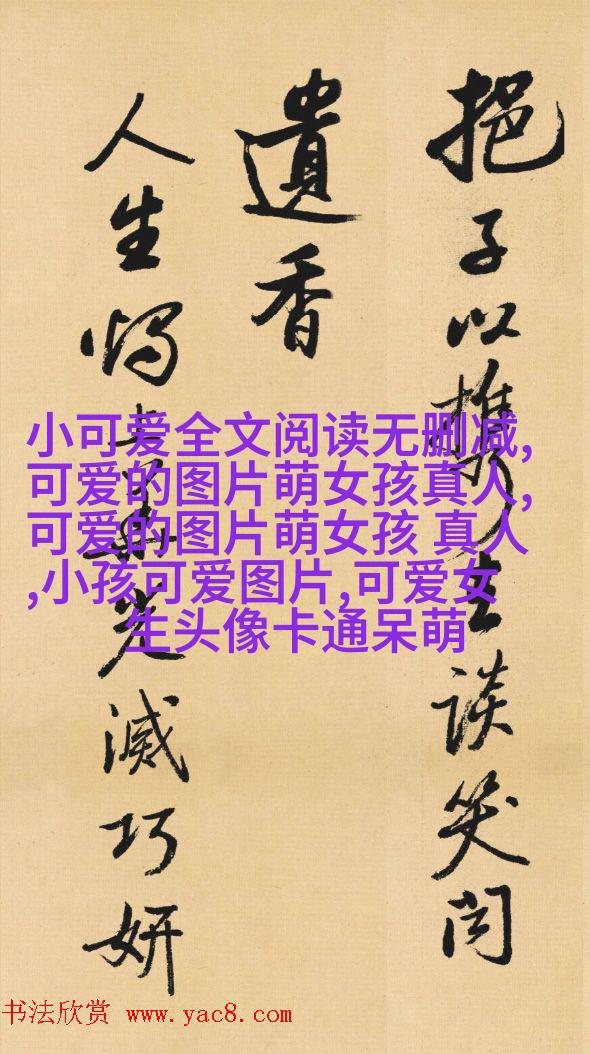 挹子以携生談笑间
遺香
人生光滅巧妍
小可爱全文阅读无删减,
可爱的图片萌女孩真人,
可爱的图片萌女孩 真人
,小孩可爱图片,可爱女
生头像卡通呆萌
书法欣赏 www.yac8.com